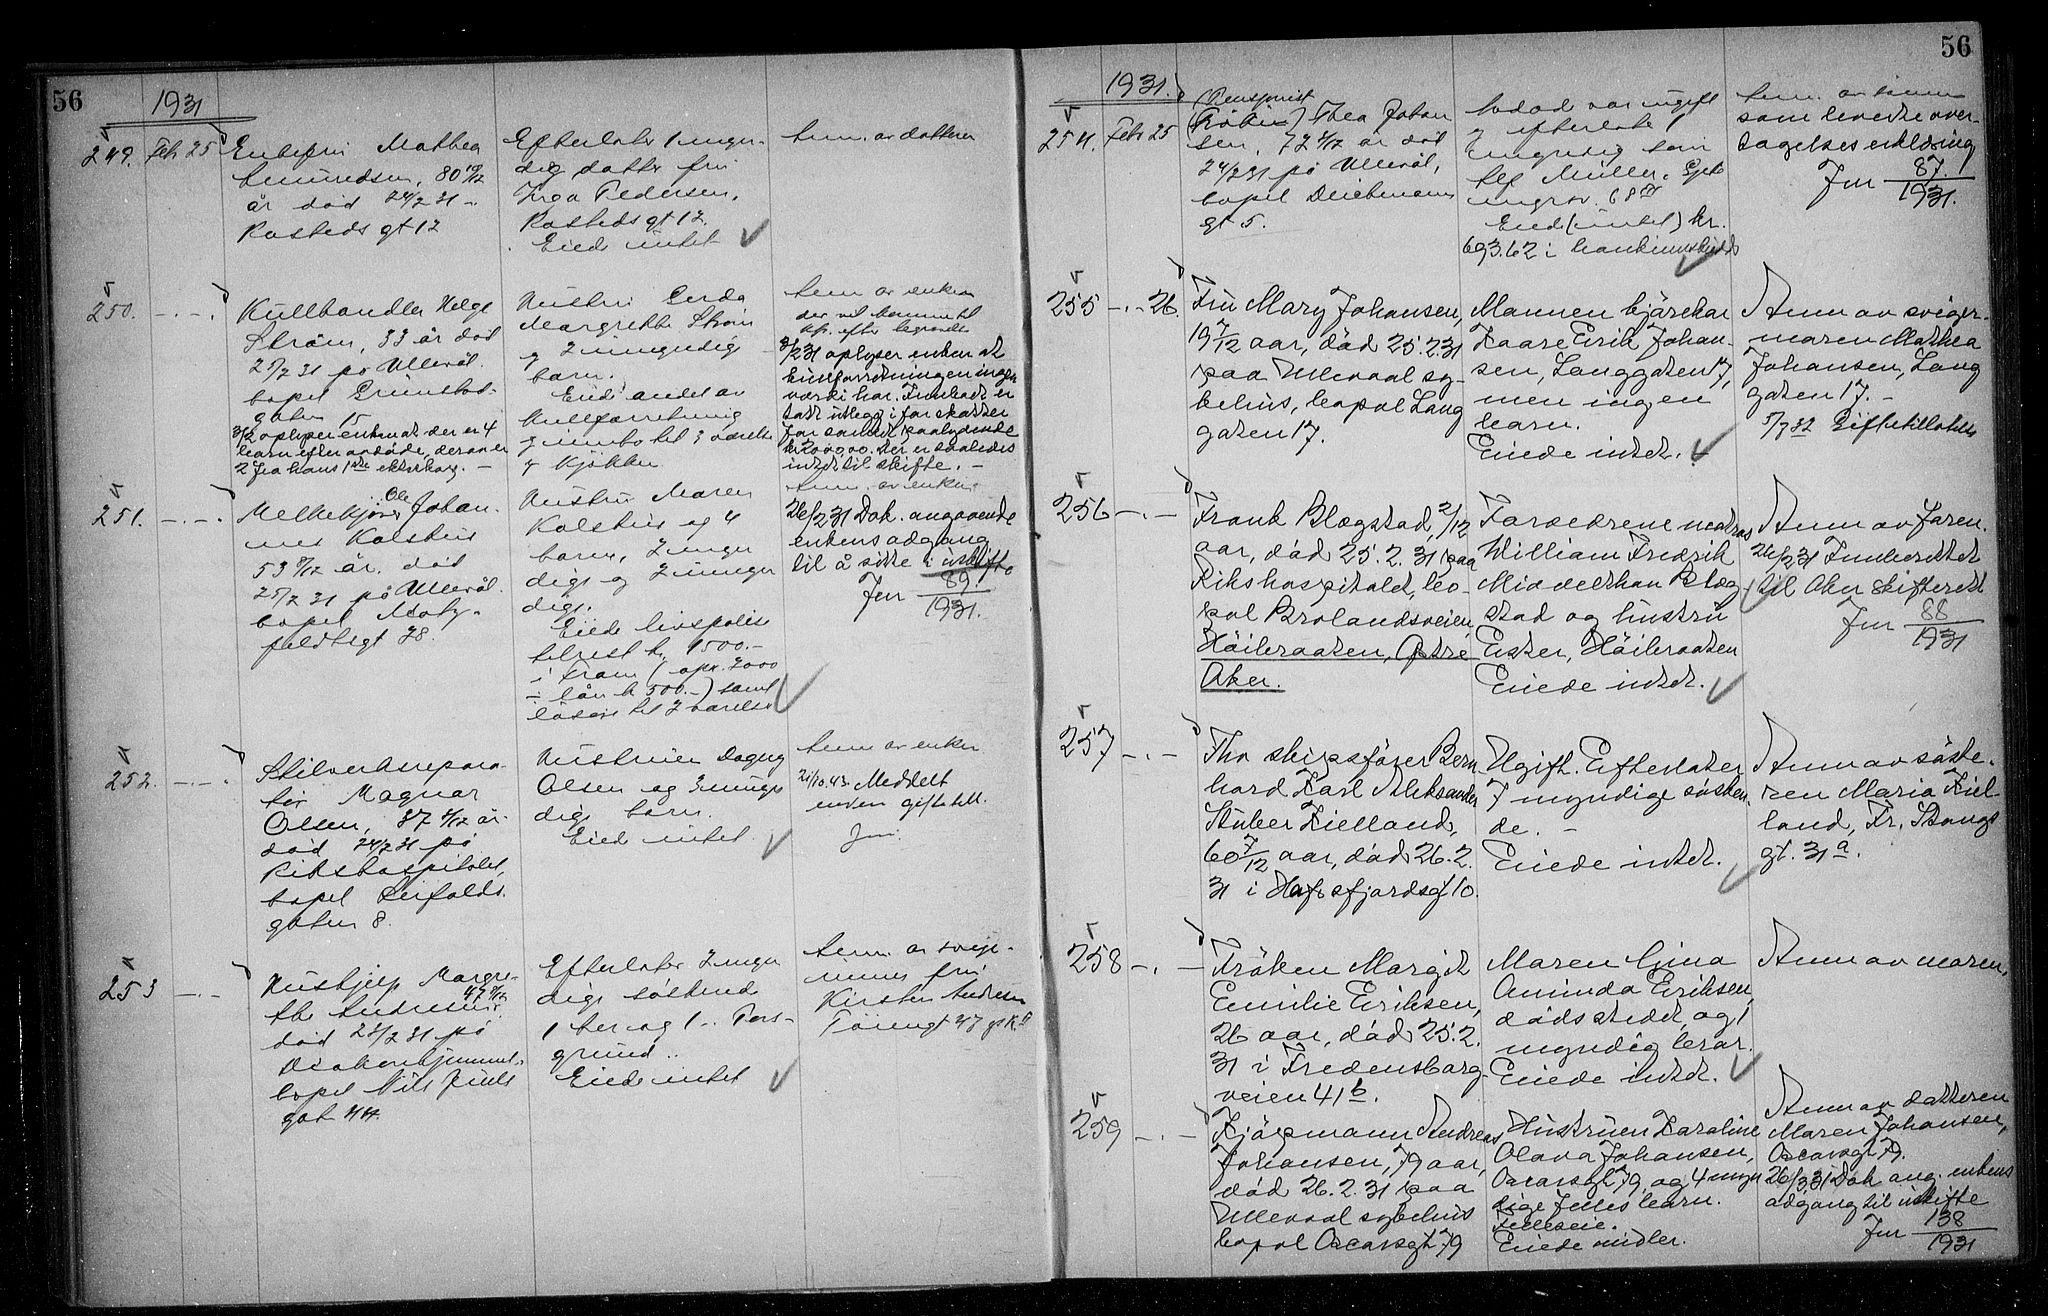 56
1931
249. Feb 25
Enkefru Mathea
Amundsen, 80 10/12
år død 24/2 31 -
Rostedsgt 12
Efterlater 1 myn-
dig datter fru
Inga Pedersen,
Rostedsgt 12.
Eiede intet
Anm. av datteren
250. -.-.
Kullhandler Helge
Strøm, 33 år død
25/2 31 på Ullevål.
bopel Grimstad-
gaten 15
3/2 oplyser enken at der er 4
barn efter avdøde, derav er
2 fra hans 1ste ekteskap. -
Hustru Gerda
Margrethe Strøm
og 2 umyndig
barn.
Eied andel av
Kullforretning
og innbo til 3 værelse
og kjøkken
Anm av enken
der vil komme til
efter begravelse
3/2 31 oplyser enken at
kullforretningen ingen
værdi har. Innboet er
tatt utlegg i for skatter
for samlet paalydende
kr 2000.00. Der er saaledes
intet til skifte. -
251. -.-.
Melkekjører Ole Johan-
nes Kolstus
53 9/12 år. død
25/2 31 på Ullevål.
bopel Motz-
feldtsgt 28.
Hustru Maren
Kolstus og 4
barn, 2 myn
dige og 2 umyn
dige.
Eiede livspolise
tilrest kr. 1500.-
i Fram (opr. 2000
- lån kr 500.-) samt
løsøre til 2 værelse
Anm. av enken
26/2 31 Dok. angaaende
enkens adgang
til å sitte i uskifte
Jnr 89/1931.
252. -.-.
Skilverksrepara-
tør Magnar
Olsen, 37 4/12 år.
død 24/2 31 på
Rikshospitalet,
bopel Leirfalds.
gaten 8.
Hustruen Dagny
Olsen og 3 umyn
dige barn.
Eied intet
Anm av enken
21/10.43. Meddelt
enken giftetill.
Jnr.
253 -.-
Hushjelp Margre-
the Andresen, 47 5/12
død 23/2 31 på
Diakonhjemmet.
bopel Nils Juels
gate 44
Efterlater 2 myn
dige søskende
1 her og 1 i Pors-
grund..
Eiede intet
Anm. av svige-
rinnen fru
Kirsten Andresen
Tøiengt 47
56
1931.
254. Feb 25
Pensjonist
(Frøken) Thea Johan
sen, 72 2/12 år død
24/2 31 på Ullevål,
bopel Deichmans
gt 5.
Avdød var ugift
og efterlater 1
myndig sønn
Müller,
68
Eied (intet) kr.
693.62 i
Anm. av sønnen
som leverte over-
tagelses erklæring
Jnr 87/1931.
255 -.- 26.
Fru Mary Johansen,
19 7/12 aar, død 25.2.31
paa Ullevaal sy-
kehus, bopæl Lang
gaten 17.
Mannen kjørekar
Kaare Erik Johan-
sen, Langgaten 17,
men ingen
barn.
Eiede intet.
Anm av sviger-
moren Mathea
Johansen, Lang
gaten 17. -
5/7 32 Giftetillatelse
256 -.-
Frank Blegstad, 2/12
aar, død 25.2.31 paa
Rikshospitalet, bo-
pæl Brolandsveien
Høibraaten, Østre
Aker.
Forældrene matros
William Fredrik
Midveethan Bleg
stad og hustru
Ester, Høibraaten
Eiede intet.
Anm av faren.
26/2 31 Innberettet
til Aker skifterett
Jnr 88/1931
257 -.-
Fhv skipsfører Bern
hard Karl Aleksander
Stuber Kielland,
60 7/12 aar, død 26.2.
31 i Hafrsfjordsgt 10.
Ugift. Efterlater
7 myndige søsken
de. -
Eiede intet.
Anm av søste-
ren Maria Kiel-
land, Fr. Stangs
gt. 31 a.
258 -.-
Frøken Margit
Emilie Eriksen,
26 aar, død 25.2.
31 i Fredensborg
veien 41 b.
Moren Gina
Aminda Eriksen,
dødsstedet, og 1
myndig bror.
Eiede intet.
Anm av moren.
259 -.-
Kjøpmann Andreas
Johansen, 79 aar,
død 26.2.31 paa
Ullevaal sykehus
bopæl Oscarsgt 79
Hustruen Karoline
Olava Johansen,
Oscarsgt 79, og 4 myn
dige felles barn.
Felleseie.
Eiede midler.
Anm av datteren
Maren Johansen,
Oscarsgt 79.
26/3 31 Dok ang. enkens
adgang til uskifte
Jnr 138/1931